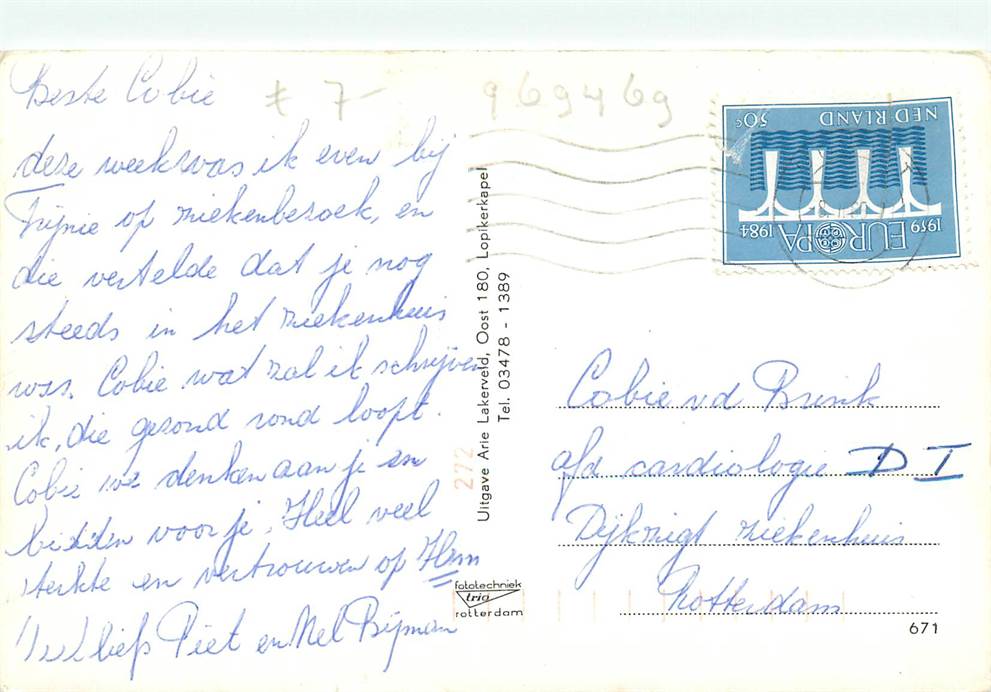 Beste Cobie
deze week was ik even bij
Trijnie op ziekenbezoek, en
die vertelde dat je nog
steeds in het ziekenhuis
was. Cobie wat zal ik schrijven
ik, die gezond rond loopt.
Cobie we denken aan je en
bidden voor je. Heel veel
sterkte en vertrouwen op Hem
liefs Piet en Nel Bijman
€ 7-
969469
Uitgave Arie Lakerveld, Oost 180, Lopikerkapel
Tel. 03478 - 1389
272
fototechniek
trio
rotterdam
NEDERLAND
50c
1959 EUROPA 1984
Cobie vd Brink
afd cardiologie D I
Dijkzigt ziekenhuis
Rotterdam
671